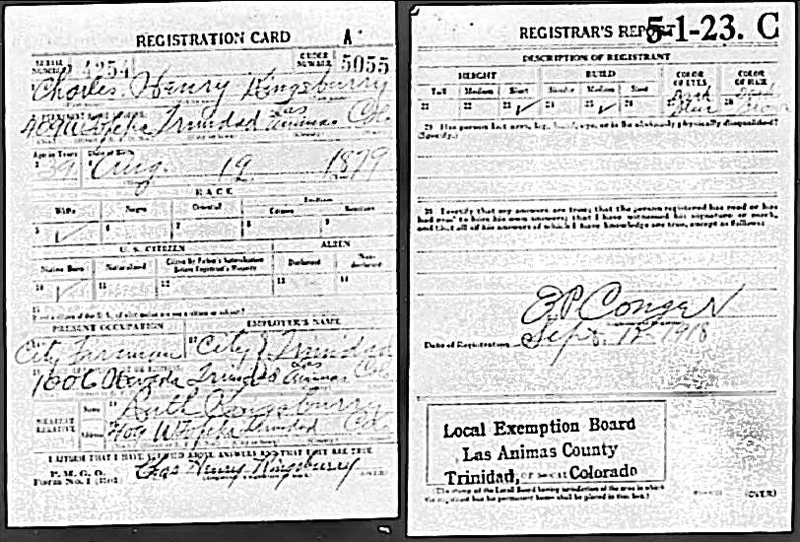 REGISTRATION CARD A
SERIAL NUMBER 4254 ORDER NUMBER 5055
Charles Henry Kingsburry
409 W Trinidad Las Animas Col.
Age in Years Date of Birth
39 Aug. 19 1879
RACE
White Negro Oriental Indian
Citizen Noncitizen
5 ✓ 6 7 8 9
U. S. CITIZEN ALIEN
Native Born Naturalized Citizen by Father's Naturalization Before Registrant's Majority Declarant Non-declarant
10 ✓ 11 12 13 14
15
If not a citizen of the U. S., of what nation are you a citizen or subject?
PRESENT OCCUPATION EMPLOYER'S NAME
City Fireman City Trinidad
Trinidad Las Animas Col.
NEAREST RELATIVE
Name Ruth Kingsburry
Address 409 W Trinidad Col.
I AFFIRM THAT I HAVE VERIFIED ABOVE ANSWERS AND THAT THEY ARE TRUE
P. M. G. O.
Form No. 1 (Red) Chas Henry Kingsburry (OVER)
REGISTRAR'S REPORT 5-1-23. C
DESCRIPTION OF REGISTRANT
HEIGHT BUILD COLOR OF EYES COLOR OF HAIR
Tall Medium Short Slender Medium Stout
21 22 23 ✓ 24 25 ✓ 26 27 Blue 28 Brown
29 Has person lost arm, leg, hand, eye, or is he obviously physically disqualified?
(Specify.)
30 I certify that my answers are true; that the person registered has read or has
had read to him his own answers; that I have witnessed his signature or mark,
and that all of his answers of which I have knowledge are true, except as follows:
E P Conger
Date of Registration Sept. 12-1918
Local Exemption Board
Las Animas County
Trinidad, Colorado
(The stamp of the Local Board having jurisdiction of the area in which
the registrant has his permanent home shall be placed in this box.)
(OVER)